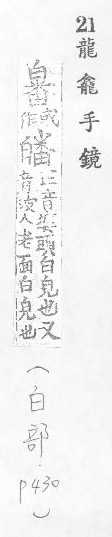 21 龍龕手鏡
或作皤正音婆頭白皃也又音波人老面白皃也(白部.p430)